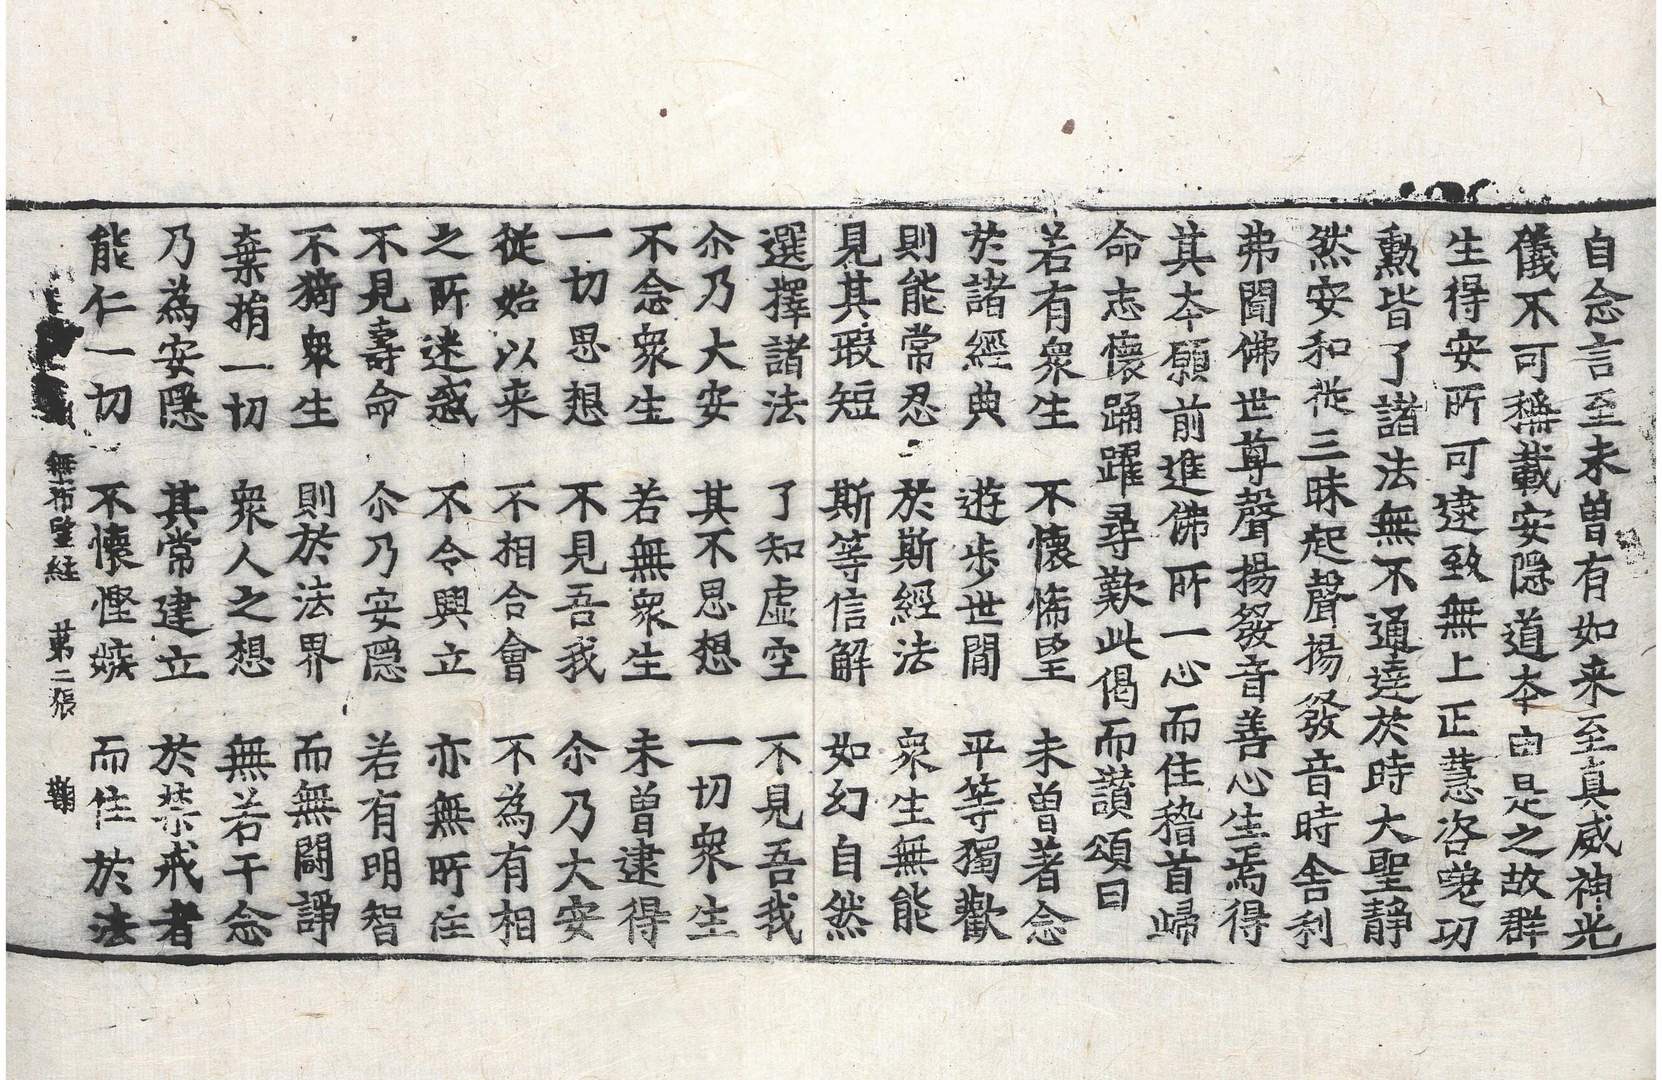 自念言至未曾有如来至真威神光
儀不可稱載安隠道夲由是之故群
生得安所可逮致無上正慧咨嗟功
勲皆了諸法無不通達於時大聖靜
然安和従三昧起聲揚發音時舎利
弗聞佛世尊聲揚發音善心生焉得
其夲願前進佛所一心而住稽首歸
命志懷踊躍尋歎此偈而讃頌曰
若有衆生　不懷悕望　未曽著念
於諸經典　遊歩世間　平等獨歡
則能常忍　於斯經法　衆生無能
見其瑕短　斯等信解　如幻自然
選擇諸法　了知虚空　不見吾我
尒乃大安　其不思想　一切衆生
不念衆生　若無衆生　未曽逮得
一切思想　不見吾我　尒乃大安
從始以来　不相合會　不為有相
之所迷惑　不令興立　亦無所住
不見壽命　尒乃安隠　若有明智
不猗衆生　則於法界　而無闘諍
棄捐一切　衆人之想　無若干念
乃為安隠　其常建立　於禁戒者
能仁一切　不懷慳嫉　而住於法
無希望経　第二張